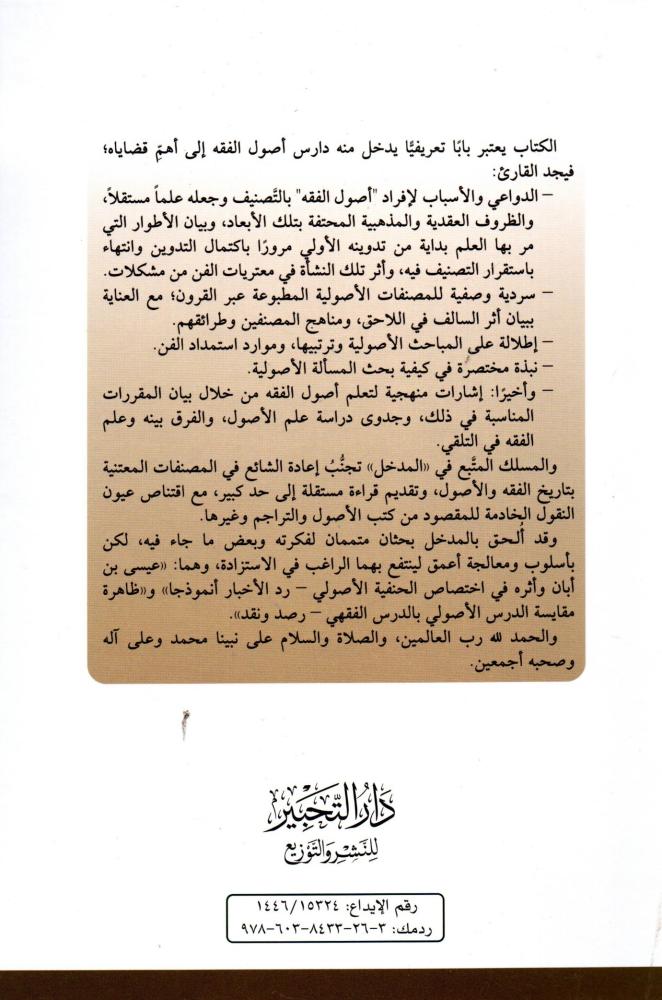 الكتاب يعتبر بابًا تعريفيًّا يدخل منه دارس أصول الفقه إلى أهمِّ قضاياه؛
فيجد القارئ:
– الدواعي والأسباب لإفراد "أصول الفقه" بالتَّصنيف وجعله علماً مستقلاً،
والظروف العقدية والمذهبية المحتفة بتلك الأبعاد، وبيان الأطوار التي
مر بها العلم بداية من تدوينه الأولي مرورًا باكتمال التدوين وانتهاء
باستقرار التصنيف فيه، وأثر تلك النشأة في معتريات الفن من مشكلات.
– سردية وصفية للمصنفات الأصولية المطبوعة عبر القرون؛ مع العناية
ببيان أثر السالف في اللاحق، ومناهج المصنفين وطرائقهم.
– إطلالة على المباحث الأصولية وترتبيها، وموارد استمداد الفن.
– نبذة مختصرة في كيفية بحث المسألة الأصولية.
– وأخيرًا: إشارات منهجية لتعلم أصول الفقه من خلال بيان المقررات
المناسبة في ذلك، وجدوى دراسة علم الأصول، والفرق بينه وعلم
الفقه في التلقي.
والمسلك المتَّبع في «المدخل» تجنُّبُ إعادة الشائع في المصنفات المعتنية
بتاريخ الفقه والأصول، وتقديم قراءة مستقلة إلى حد كبير، مع اقتناص عيون
النقول الخادمة للمقصود من كتب الأصول والتراجم وغيرها.
وقد أُلحق بالمدخل بحثان متممان لفكرته وبعض ما جاء فيه، لكن
بأسلوب ومعالجة أعمق لينتفع بهما الراغب في الاستزادة، وهما: «عيسى بن
أبان وأثره في اختصاص الحنفية الأصولي – رد الأخبار أنموذجا» و«ظاهرة
مقايسة الدرس الأصولي بالدرس الفقهي – رصد ونقد».
والحمد لله رب العالمين، والصلاة والسلام على نبينا محمد وعلى آله
وصحبه أجمعين.
دَارُ التَّحْبِيْرِ
لِلنَّشْرِ وَالتَّوْزِيعِ
رقم الإيداع: ١٤٤٦/١٥٣٢٤
ردمك: ٣-٢٦-٨٤٣٣-٦٠٣-٩٧٨